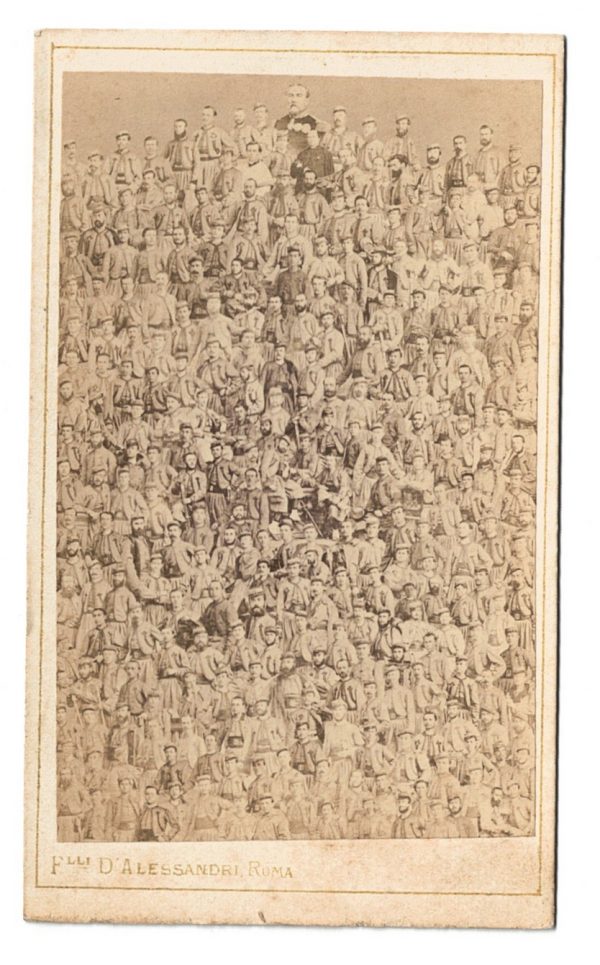 Flli D'Alessandri, Roma